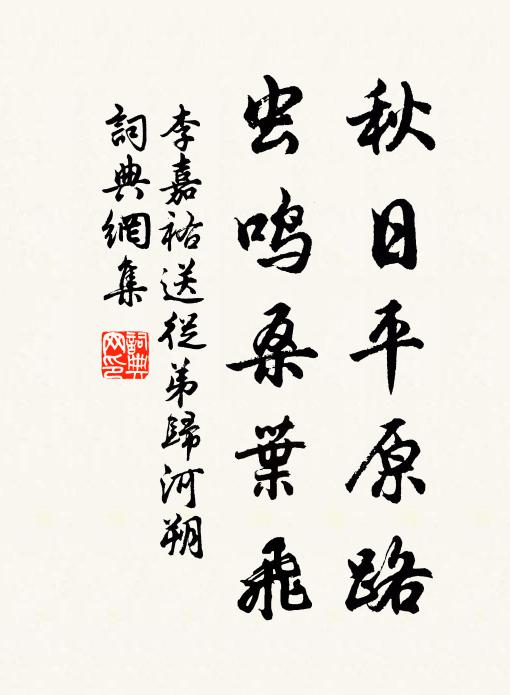 秋日平原路
虫鸣桑葉飛
李嘉祐送從弟歸河朔
詞典網集
詞典網印